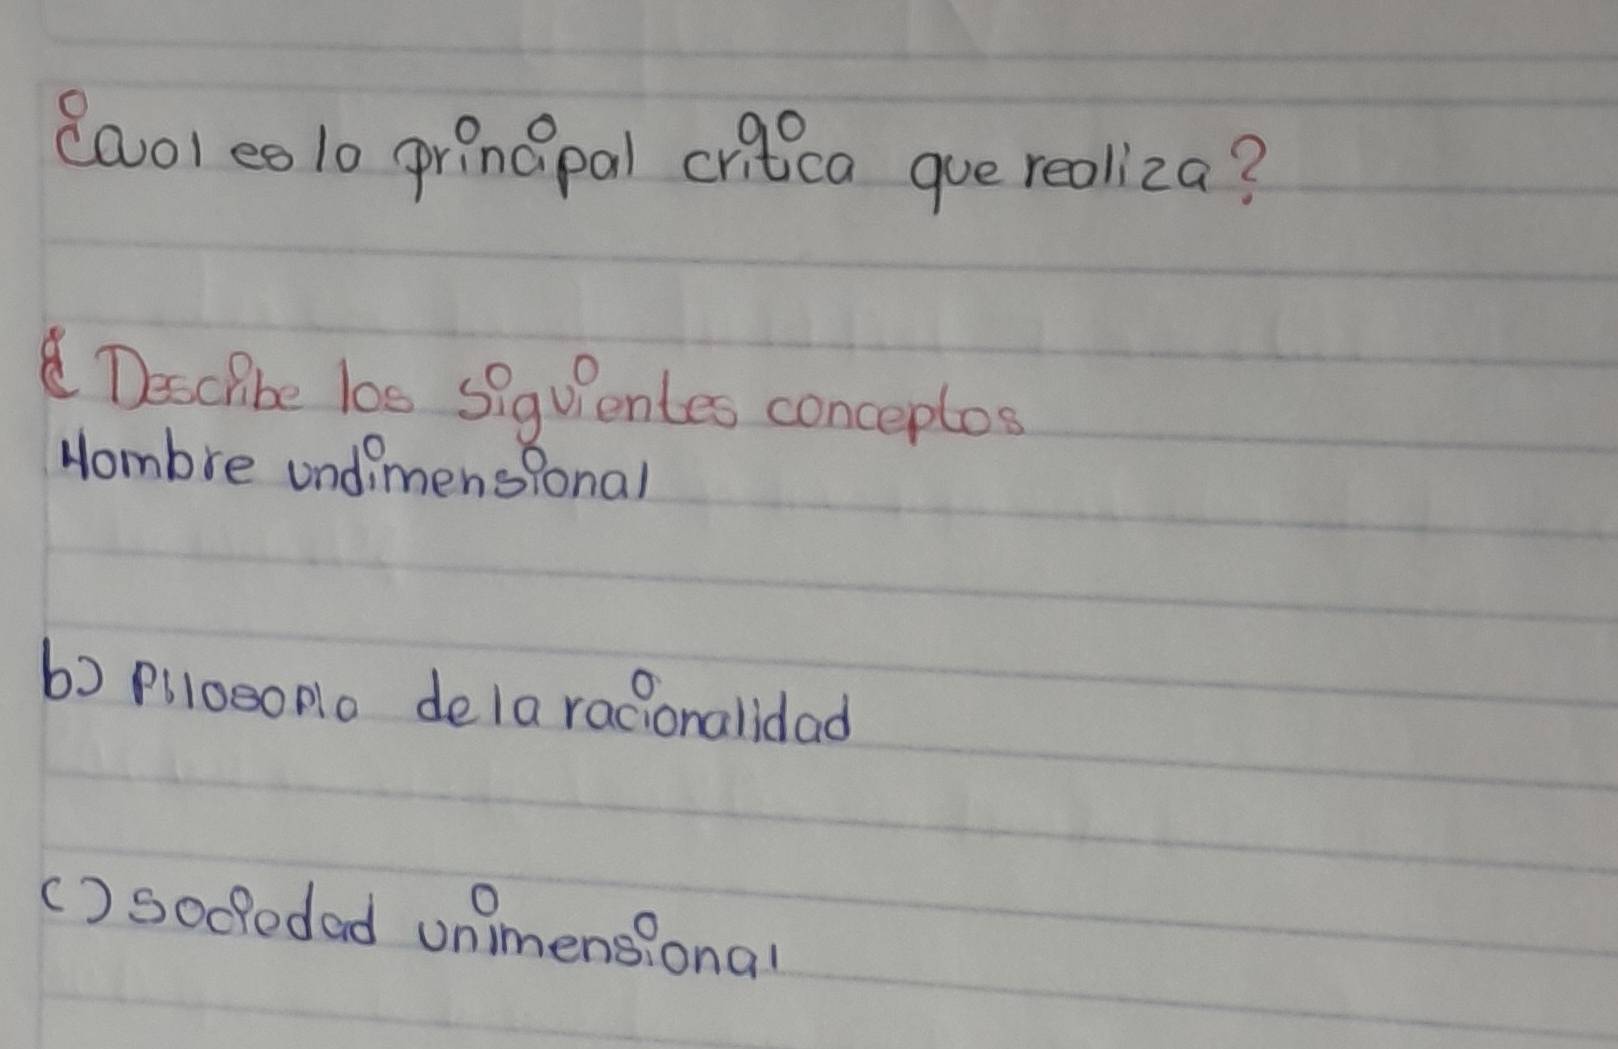 ¿Cual es la principal critica que realiza?
¿ Describe los siguientes conceptos
Hombre undimensional
b) Filosofia de la racionalidad
c) sociedad unimensional